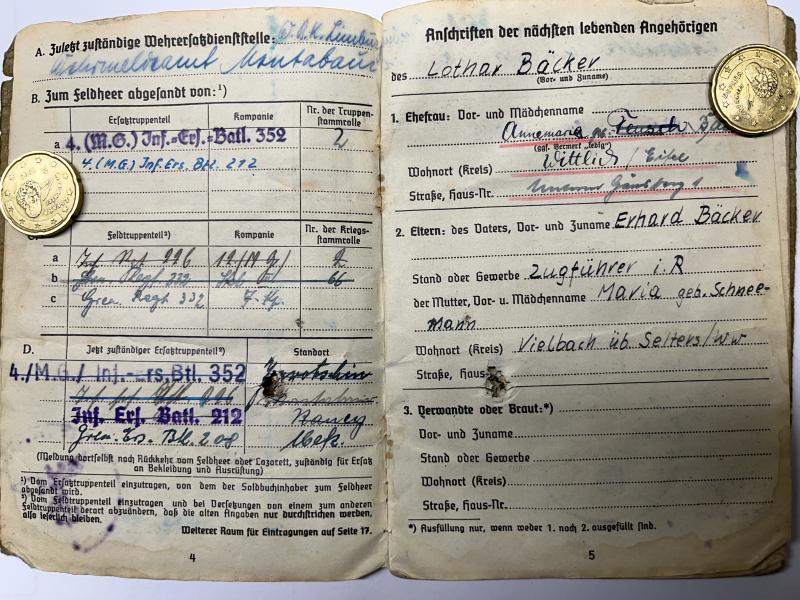 A. Zuletzt zuständige Wehrersatzdienststelle: W.B.K. Limburg
Wehrmeldeamt Montabaur
B. Zum Feldheer abgesandt von:¹)
Ersatztruppenteil Kompanie Nr. der Truppenstammrolle
a 4. (M.G.) Inf.-Ers.-Batl. 352 2
4. (M.G.) Inf. Ers. Btl. 212
Feldtruppenteil²) Kompanie Nr. der Kriegsstammrolle
a Inf. 226 12./M.G./ 2
b Gren. Regt 332 66
c Gren. Regt 332 7. Kp.
D. Jetzt zuständiger Ersatztruppenteil²) Standort
4./M.G./ Inf.-Ers.Btl. 352
226
Inf. Ers. Batl. 212 Nancy
Gren. Ers. Btl. 208 Metz.
(Meldung dortselbst nach Rückkehr vom Feldheer oder Lazarett, zuständig für Ersatz
an Bekleidung und Ausrüstung)
¹) Vom Ersatztruppenteil einzutragen, von dem der Soldbuchinhaber zum Feldheer
abgesandt wird.
²) Vom Feldtruppenteil einzutragen und bei Versetzungen von einem zum anderen
Feldtruppenteil derart abzuändern, daß die alten Angaben nur durchstrichen werden,
also leserlich bleiben.
Weiterer Raum für Eintragungen auf Seite 17.
4
Anschriften der nächsten lebenden Angehörigen
des Lothar Bäcker
(Vor- und Zuname)
1. Ehefrau: Vor- und Mädchenname
Annemarie
(ggf. Vermerk „ledig")
Wohnort (Kreis) Wittlich / Eifel
Straße, Haus-Nr.
2. Eltern: des Vaters, Vor- und Zuname Erhard Bäcker
Stand oder Gewerbe Zugführer i.R
der Mutter, Vor- u. Mädchenname Maria geb. Schnee-
mann
Wohnort (Kreis) Vielbach üb Selters/Ww
Straße, Haus-
3. Verwandte oder Braut:*)
Vor- und Zuname
Stand oder Gewerbe
Wohnort (Kreis)
Straße, Haus-Nr.
*) Ausfüllung nur, wenn weder 1. noch 2. ausgefüllt sind.
5